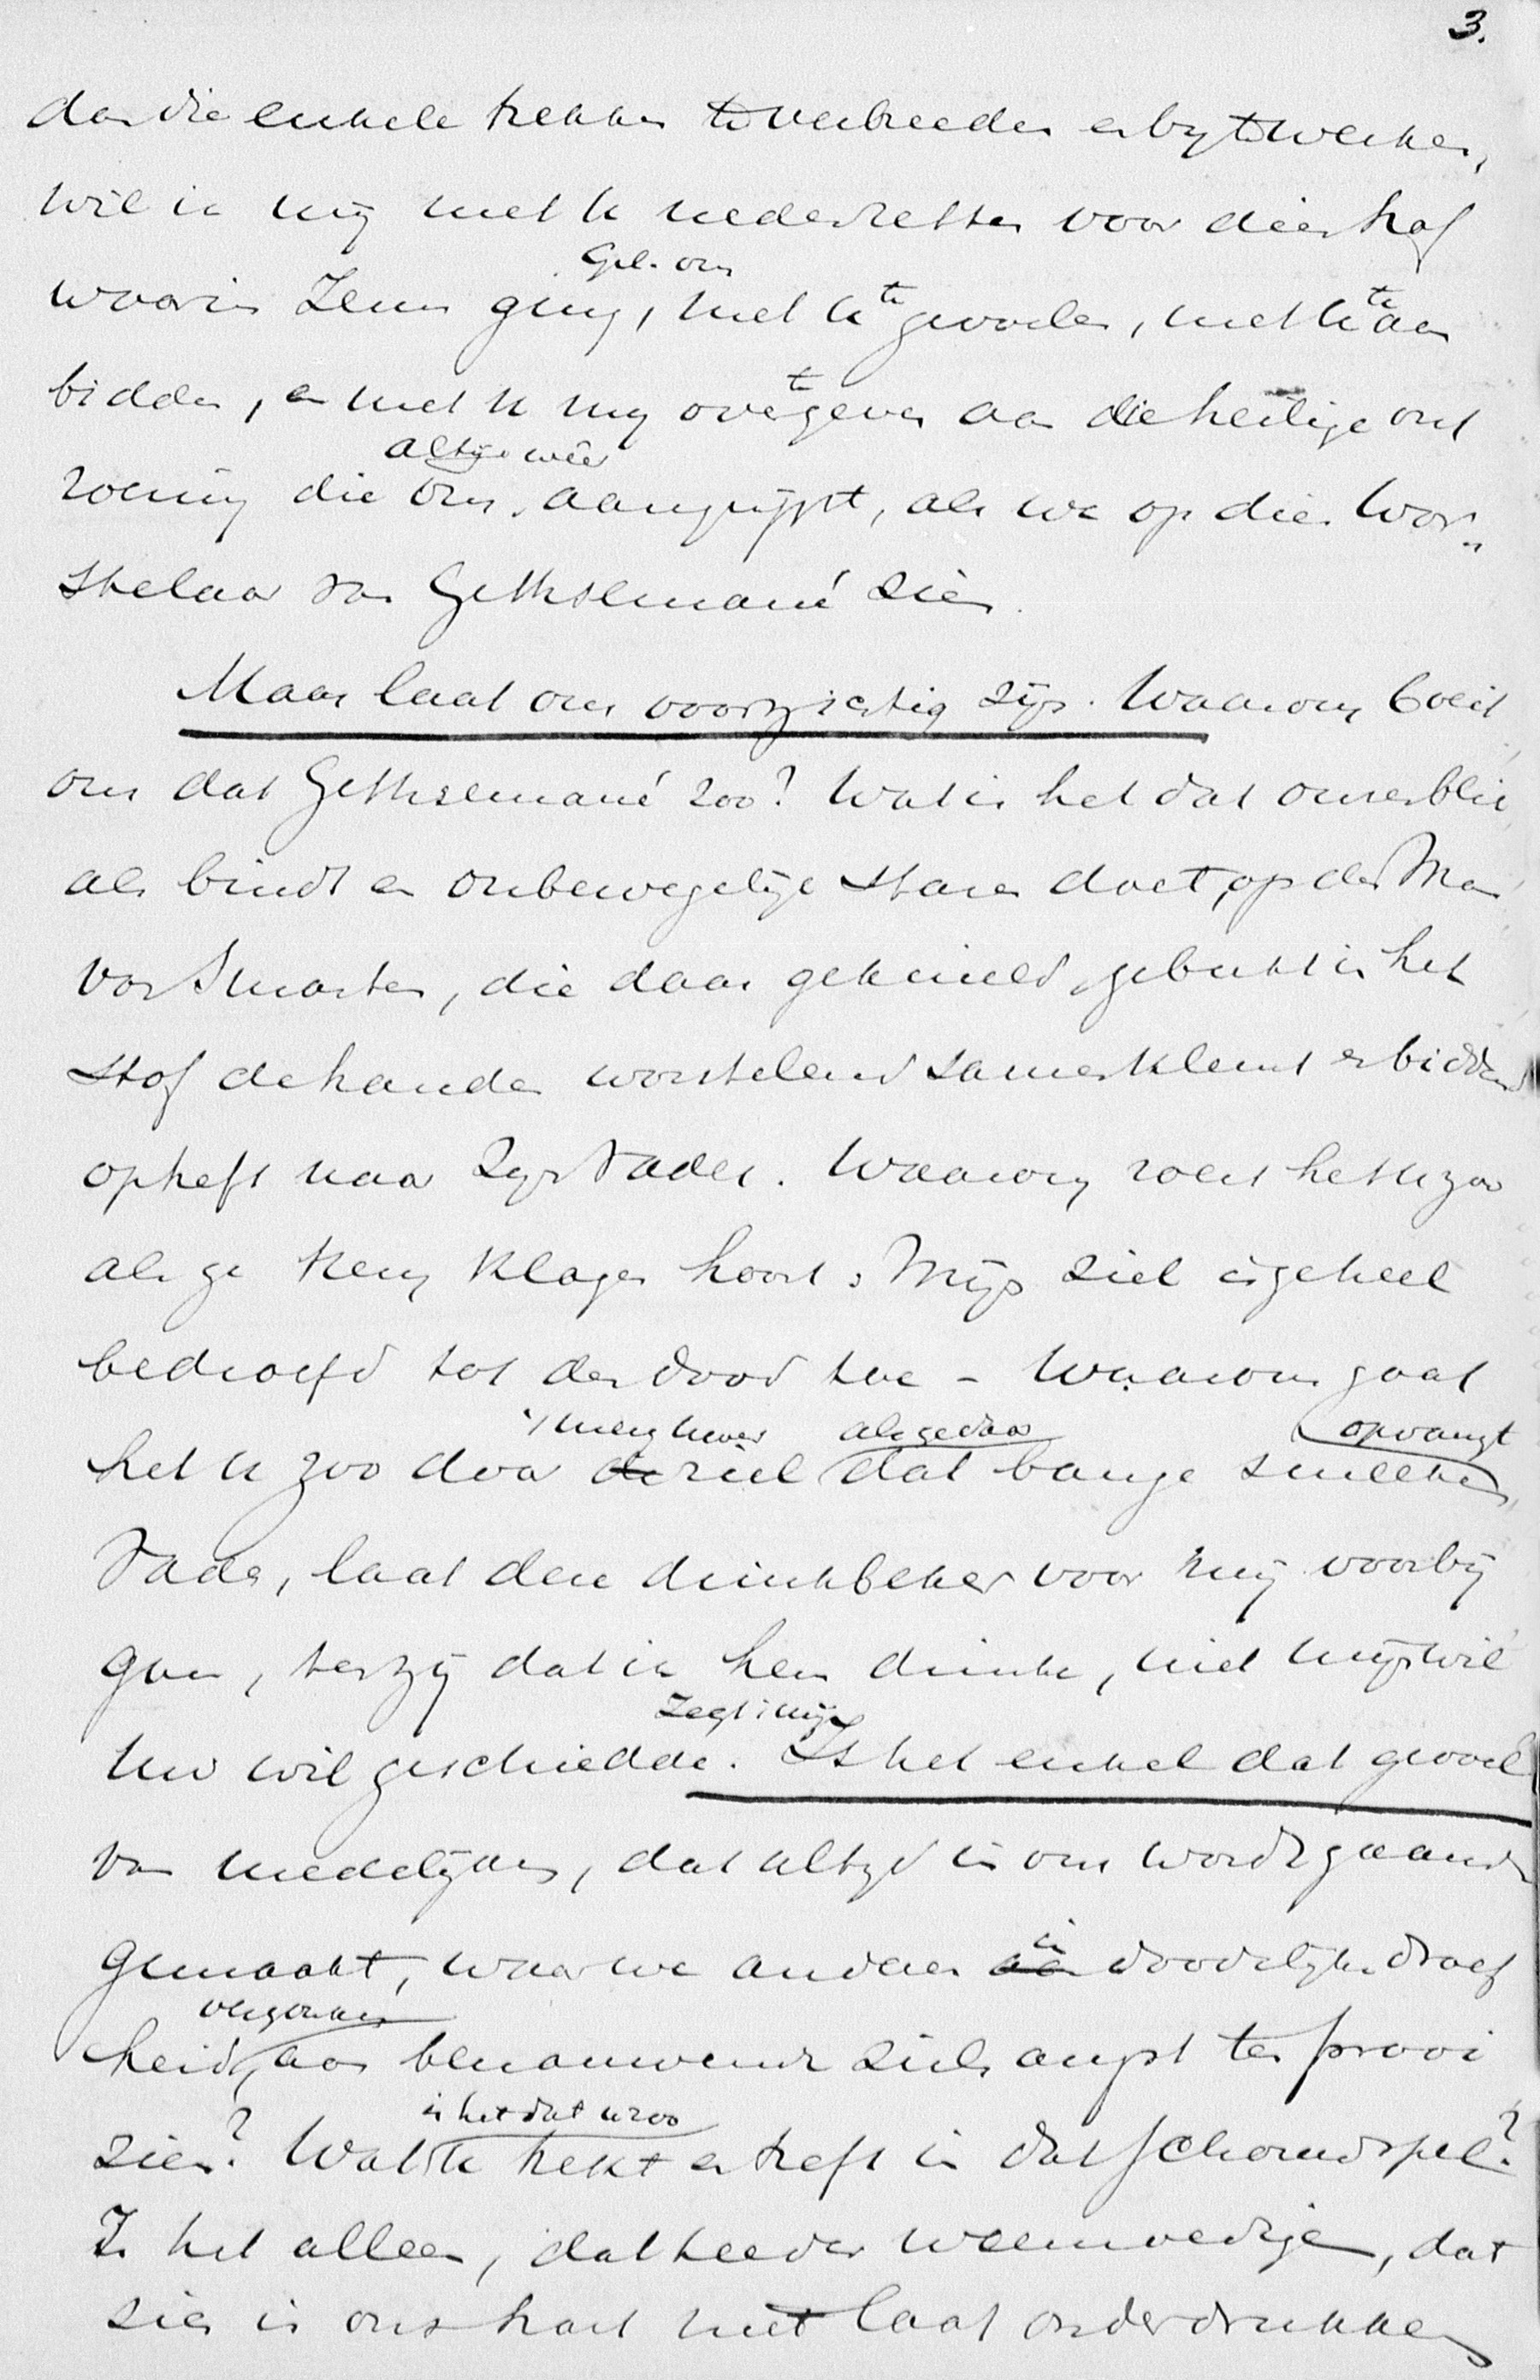 3.
dan die enkele trekken te verbreeden en by te werken,
wil ik mij met U nederzetten voor dien hof
Gel. om
waarin Jezus ging, met U te gevoelen, met U te aan
bidden, en met U my over te geven aan die heilige ont
altijd weêr
roering die ons aangrijpt, als we op dien Wor„
stelaar van Gethsemané zien.
Maar laat ons voorzichtig zijn. Waarom boeit
ons dat Gethsemané zoo? Wat is het dat onzen blik
als bindt en onbewegelijk staren doet, op den Man
van Smarten, die daar geknield, gebukt in het
stof de handen worstelend samenklemt en biddend
opheft naar Zijn Vader. Waarom roert het U zoo
als ge Hem klagen hoort: Mijn ziel is geheel
bedroefd tot den dood toe – Waarom gaat
't merg uwer als ge daar opvangt
het U zoo door de ziel dat bange smeeken,
Vader, laat deze drinkbeker voor mij voorbij
gaan, tenzij dat ik hem drinke, niet mijn wil
Zegt mij
Uw wil geschiedde. Is het enkel dat gevoel
van medelijden, dat altijd in ons wordt gaande
in
gemaakt, waar we anderen aan doodelijke droef
verzonken
heid, aan benauwende zielsangst ten prooi
is het dat U zoo
zien? Wat U trekt en treft in dat schouwspel?
Is het alleen, dat teeder weemoedige, dat
zich in ons hart niet laat onderdrukken